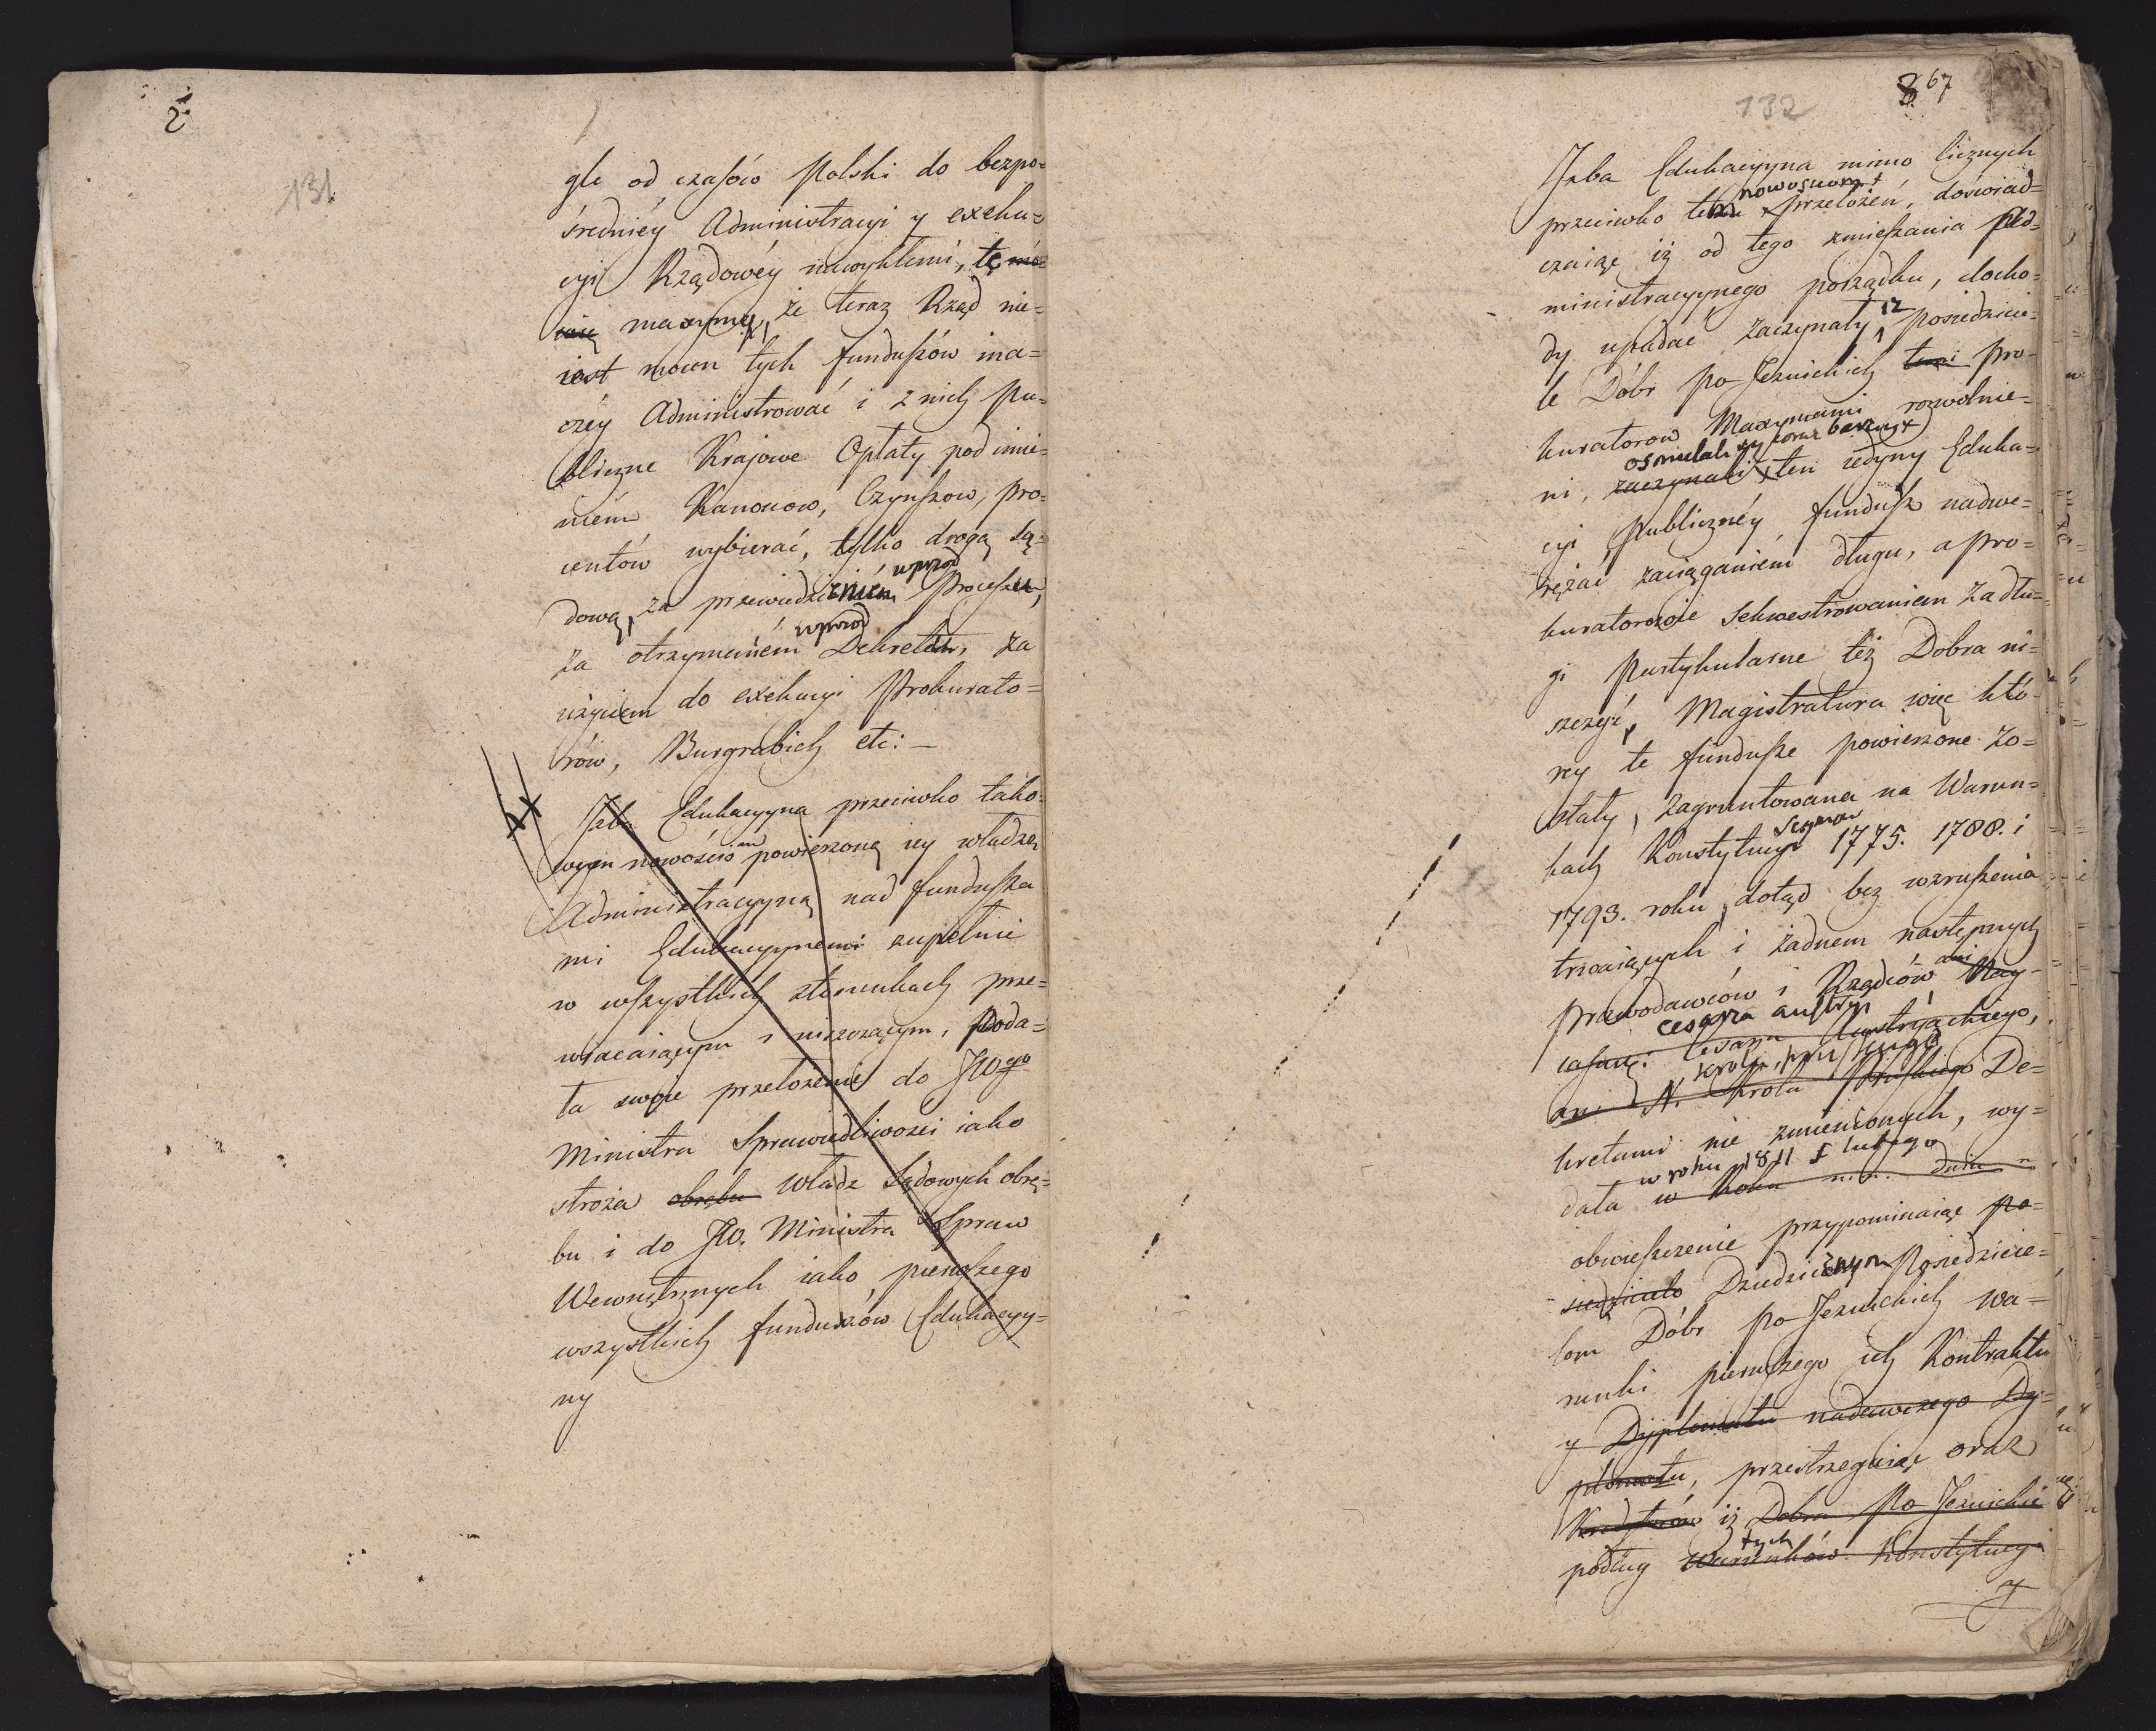 2
131
gle od czasów Polski do bezpo=
średniéy Administracyi y exeku=
cyi Rządowéy nawykłemi, tę mó=
wię maxymę, że teraz Rząd nie=
iest mocen tych funduszów ina=
czéy Administrować i z nich Pu=
bliczne Krajowe Opłaty pod imie=
niem Kanonow, Czynszow, pro=
centów wybierać, tylko drogą Są=
uprzod
dową, za przewiedzieniem Processu,
uprzod
za otrzymaniem Dekretu, za
użyciem do exekucyi Prokurato=
rów, Burgrabich etc: —
Izba Edukacyyna przeciwko tako=
wym nowościom powierzoną iey władzę
Administracyyną nad fundusza
mi Edukacyynemi zupełnie
w wszystkich stosunkach prze=
wracaiącym i niszczącym, Poda=
ła swoie przełożenie do JWgo
Ministra Sprawiedliwosci iako
stroża obrębu Władz Sądowych obrę=
bu i do JW. Ministra Spraw
Wewnętrznych iako pierwszego
wszystkich funduszów Edukacyy=
ny
132
8 67
Izba Edukacyyna mimo licznych
nowosciom
przeciwko temu przełożeń, doswiad=
czaiąc iż od tego zmieszania Ad=
ministracyynego porządku, docho=
dy upadać zaczynały, iż Posiedzicie=
le Dóbr Po-Jezuickich temi Pro=
kuratorow Maxymami rozwolnie=
osmielali się coraz barziey
ni, zaczynali ten iedyny Eduka=
cyi Publicznéy fundusz nadwe=
rężać zaciąganiem długu, a Pro=
kuratorzoie Sekwestrowaniem za dłu=
gi Partykularne też Dobra ni=
szczyć, Magistratura więc któ=
rey te fundusze powierzone zo=
stały, zagruntowana na Warun=
Seymow
kach Konstytucyi 1775. 1788. i
1793. roku, dotąd bez wzruszenia
trwaiących i żadnem następnych
ani
Prawodawców i Rządców Nay=
cesarza austryi
iasnię: Cesarza Austryackiego,
krola pruskiego
ani N. Krola Pruskiego De=
kretami nie zmienionych, wy=
w roku 1811 lutego
dała w Roku dnia
obwieszczenie przypominaiąc po=
siedzicielo Dziedzicznym Posiedzicie=
lom Dóbr Po-Jezuickich wa=
runki pierwszego ich Kontraktu
y Dyplomatu nadawczego Dy=
plomatu, przestrzegaiąc oraz
Kredytorów iż Dobra Po-Jezuickie
tych
podług Warunków Konstytucyi
y